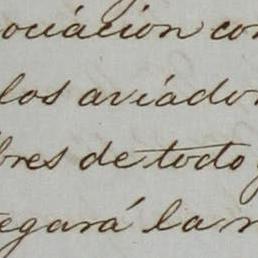 ociacion con
los aviador
bres de todo
egará la r